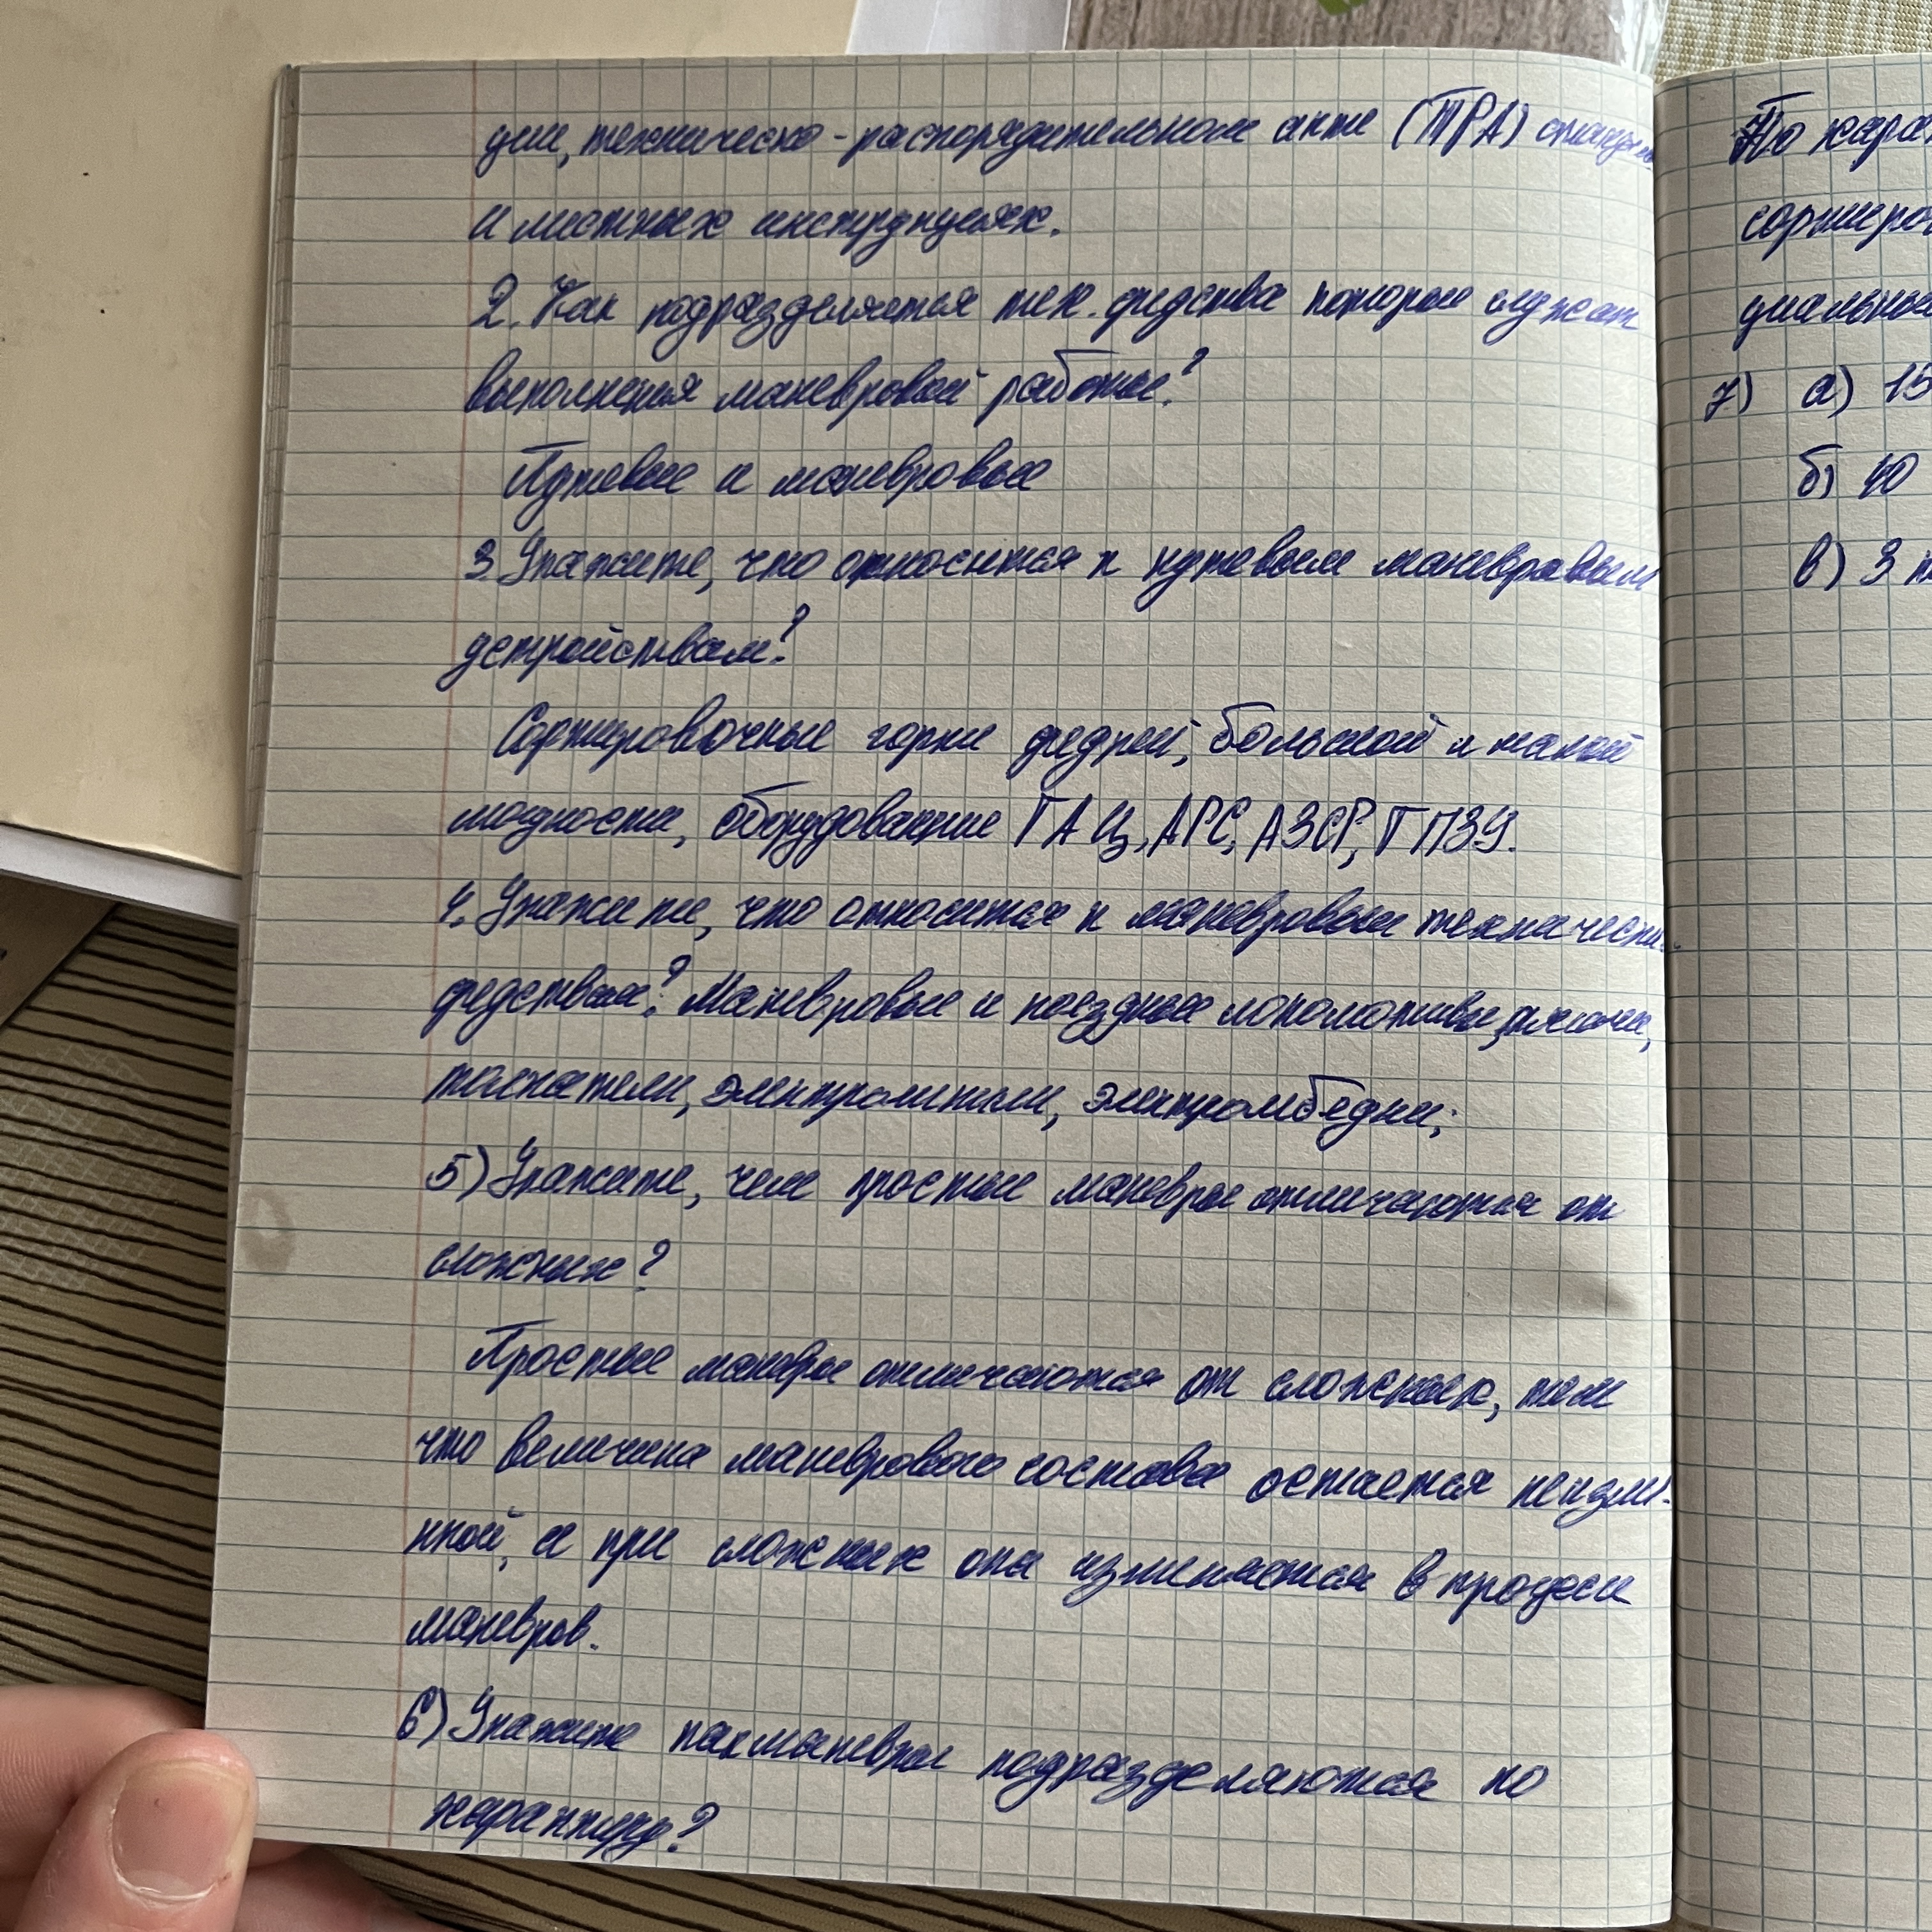 ции, техническо-распорядительном акте (ТРА) станции
и местных инструкциях.
2. Как подразделяется тех. средства которые служат
выполнения маневровой работы?
Путевые и маневровые
3. Укажите, что относится к путевым маневровым
устройствам?
Сортировочные горки средней, большой и малой
мощности, оборудование ГАЦ, АРС, АЗСР, ГПЗУ.
4. Укажите, что относится к маневровым технически
средствам? Маневровые и поездные локомотивы,
толкатели, электро, электролебедки;
5) Укажите, чем простые маневры отличаются от
сложных?
Простые маневры отличаются от сложных, тем
что величина маневрового состава остается неизме-
нной, а при сложных она изменяется в процессе
маневров.
6) Укажите как маневры подразделяются по
характеру?
По харак
сортиров
циальны
7) а) 15
б) 40
в) 3